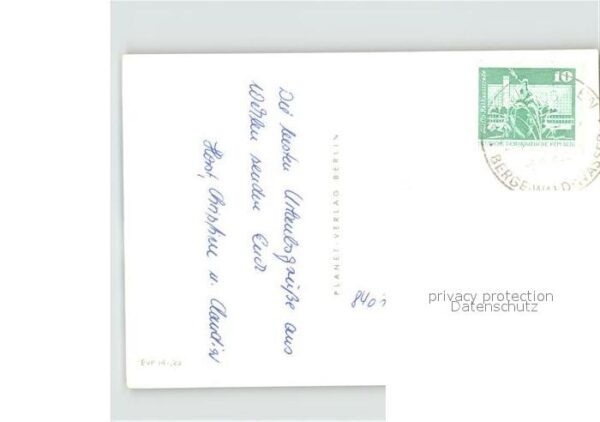 Die besten Urlaubsgrüße aus
senden Euch
Horst, Christine u. Claudia
PLANET-VERLAG BERLIN
10
DEUTSCHE DEMOKRATISCHE REPUBLIK
BERGE·WALD·WASSER
privacy protection
Datenschutz